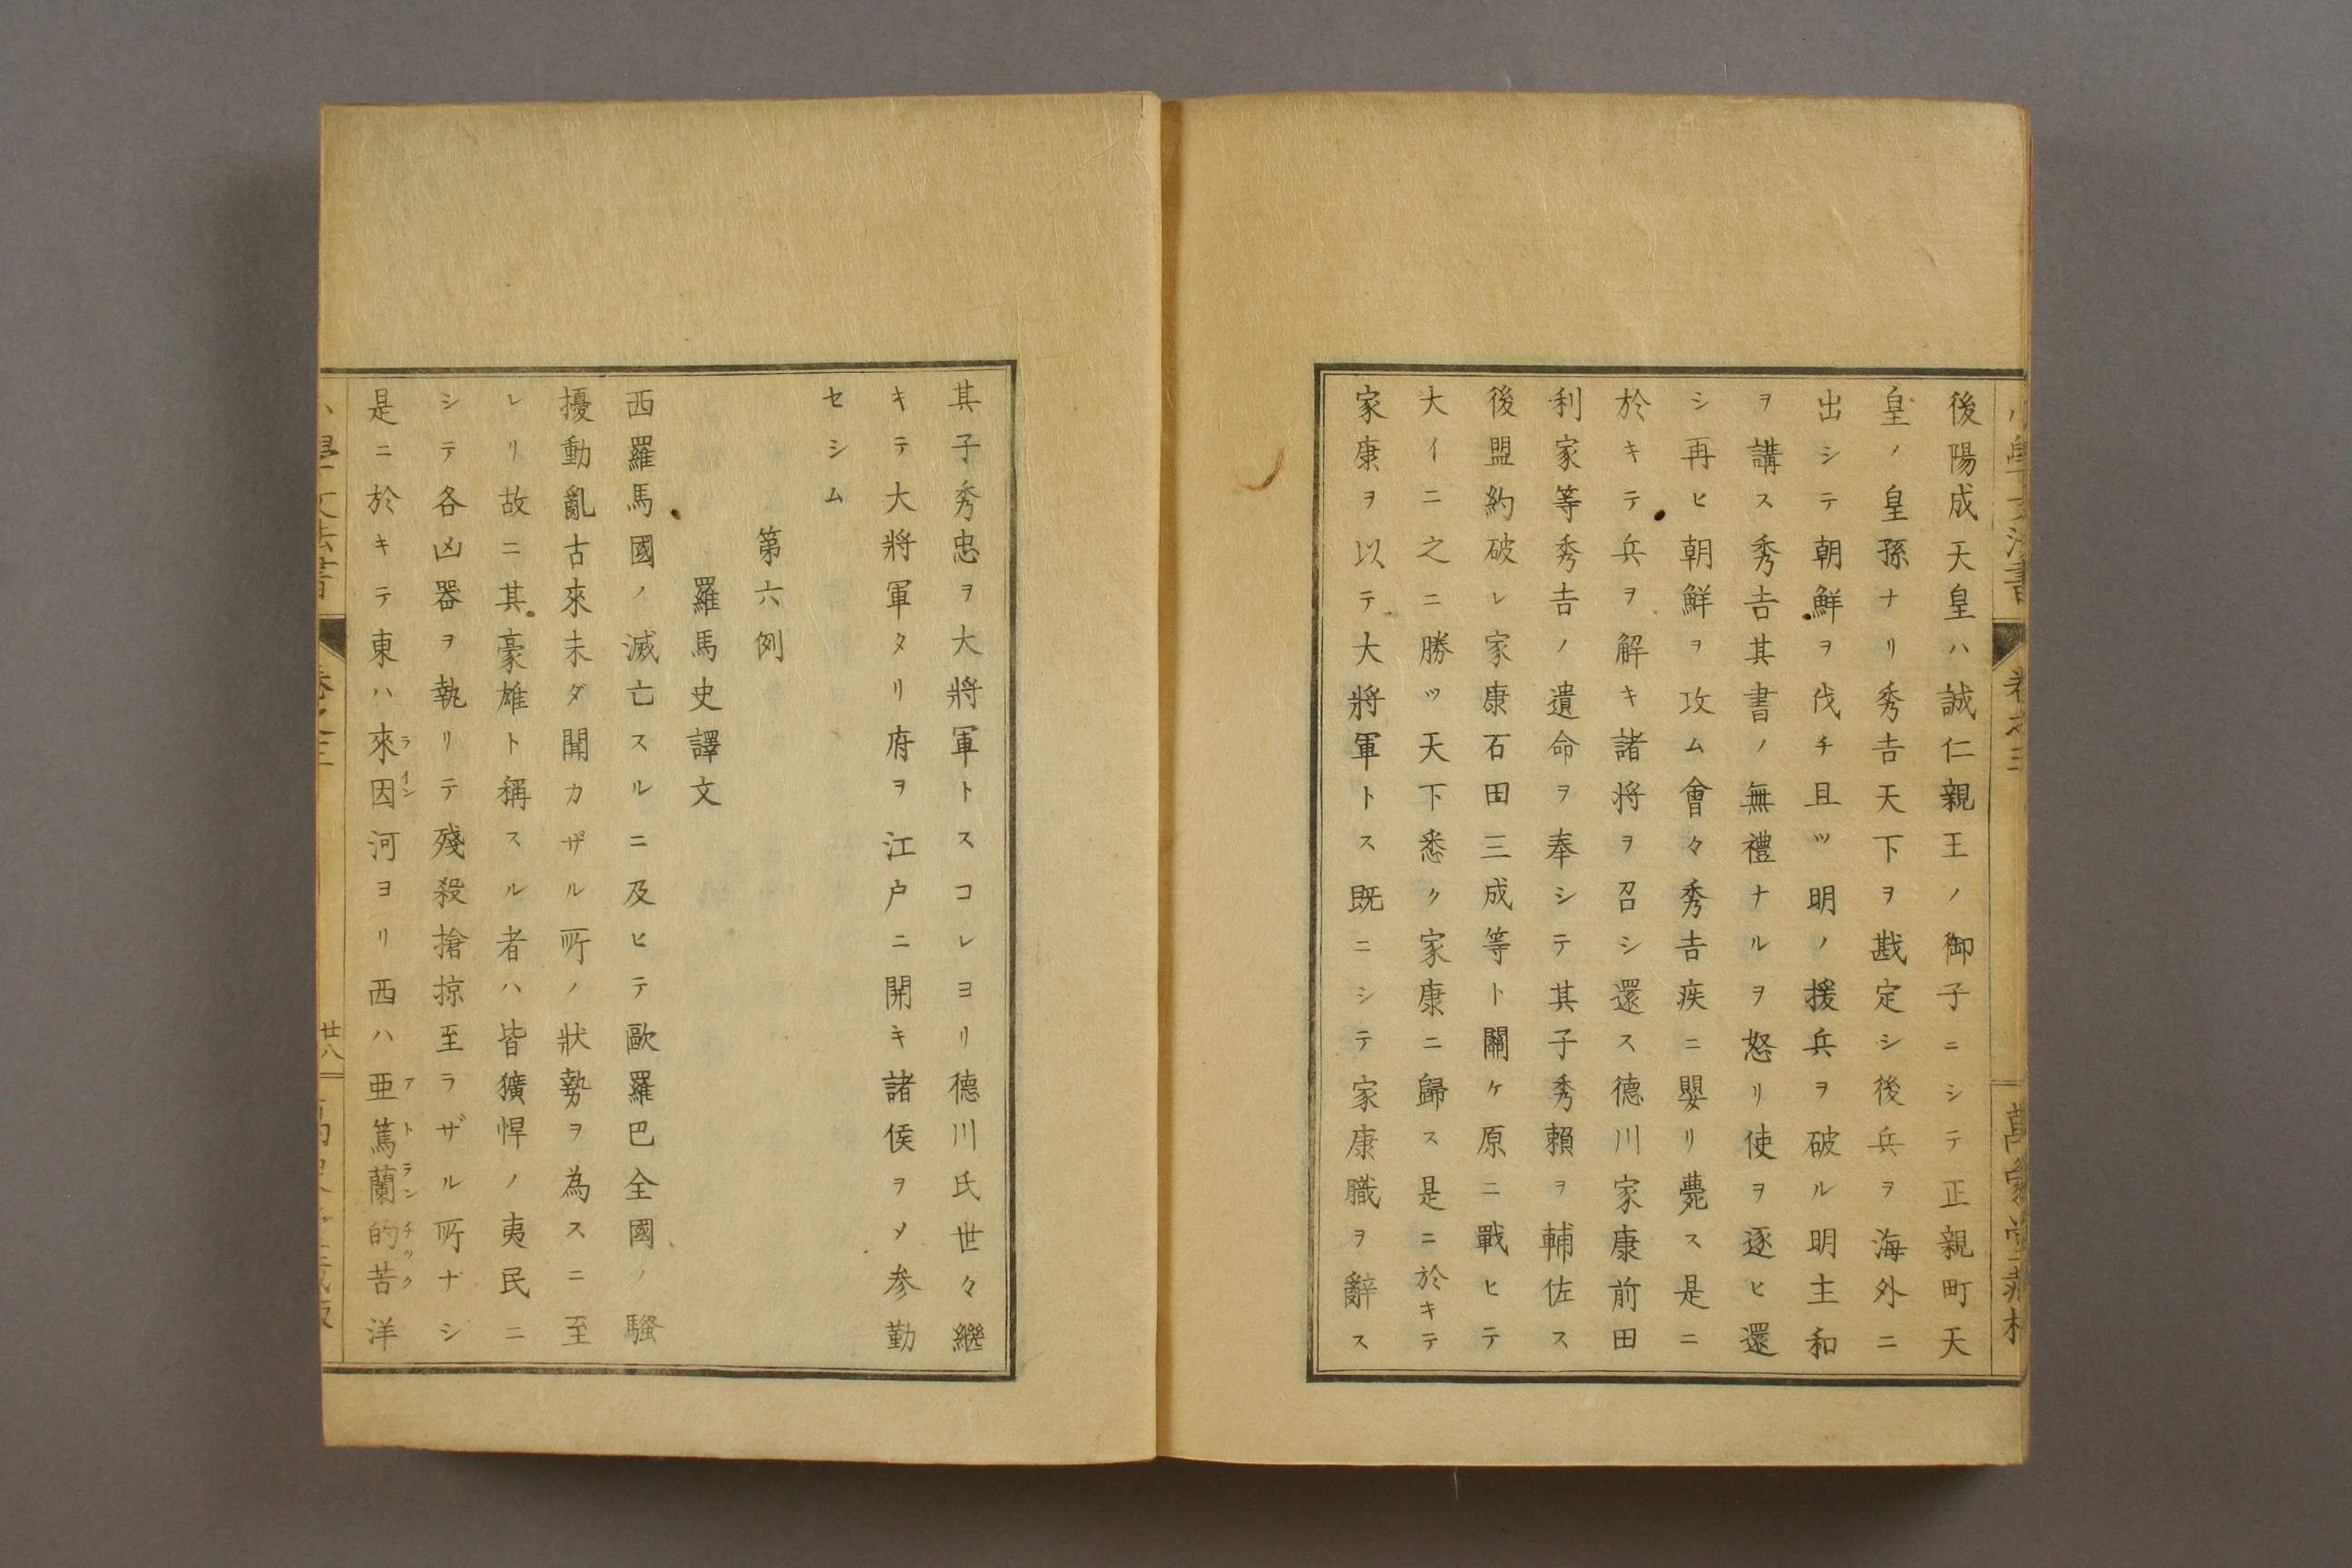 後陽成天皇ハ誠仁親王ノ御子ニシテ正親町天
皇ノ皇孫ナリ秀吉天下ヲ戡定シ後兵ヲ海外ニ
出シテ朝鮮ヲ伐チ且ツ明ノ援兵ヲ破ル明主和
ヲ講ス秀吉其書ノ無禮ナルヲ怒リ使ヲ逐ヒ還
シ再ヒ朝鮮ヲ攻ム會々秀吉疾ニ嬰リ薨ス是ニ
於キテ兵ヲ解キ諸将ヲ召シ還ス徳川家康前田
利家等秀吉ノ遺命ヲ奉シテ其子秀賴ヲ輔佐ス
後盟約破レ家康石田三成等ト關ケ原ニ戰ヒテ
大イニ之ニ勝ツ天下悉ク家康ニ歸ス是ニ於キテ
家康ヲ以テ大將軍トス既ニシテ家康職ヲ辭ス
其子秀忠ヲ大將軍トスコレヨリ德川氏世々繼
キテ大將軍タリ府ヲ江戸ニ開キ諸侯ヲメ参勤
セシム
第六例
羅馬史譯文
西羅馬國ノ滅亡スルニ及ヒテ歐羅巴全國ノ騷
擾動亂古來未ダ聞カザル所ノ狀勢ヲ為スニ至
レリ故ニ其豪雄ト稱スル者ハ皆獷悍ノ夷民ニ
シテ各凶器ヲ執リテ殘殺搶掠至ラザル所ナシ
是ニ於キテ東ハ來因河ヨリ西ハ亜篤蘭的苦洋
ライン
アトランチック
卷之三
廿八